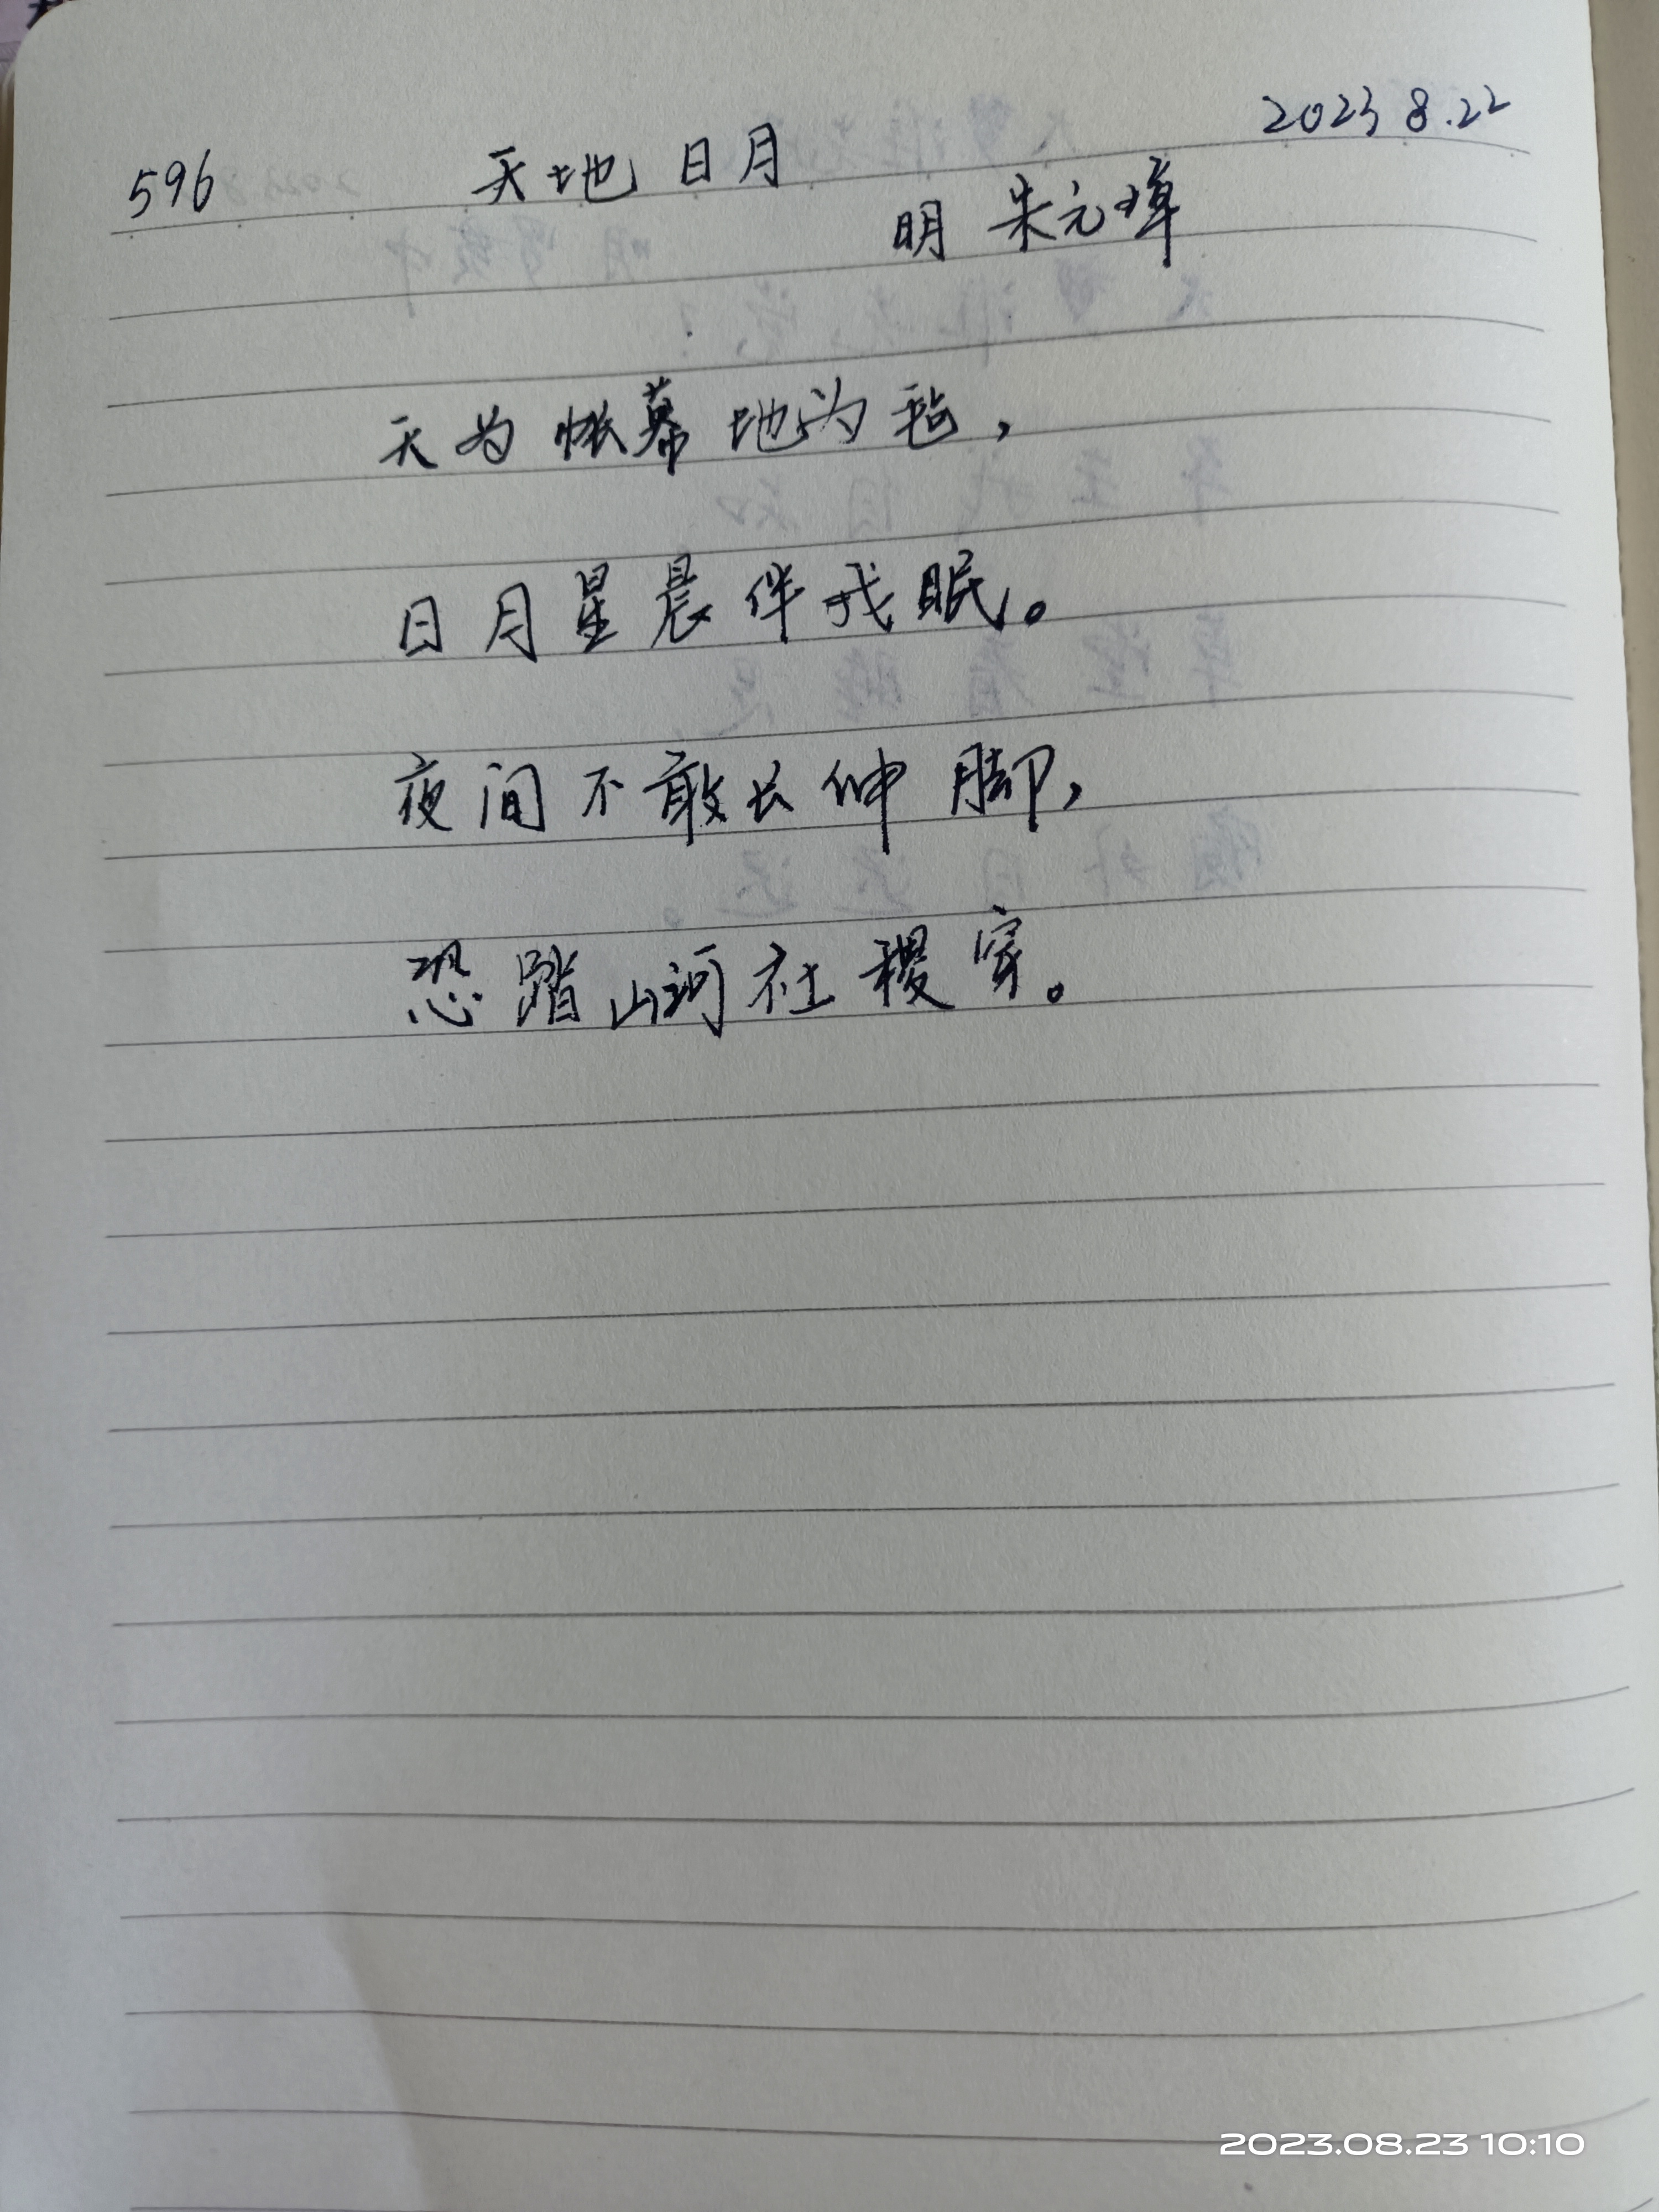 2023 8.22
596 天地日月
明 朱元璋
天为帐幕地为毡，
日月星晨伴我眠。
夜间不敢长伸脚，
恐踏山河社稷穿。
2023.08.23 10:10